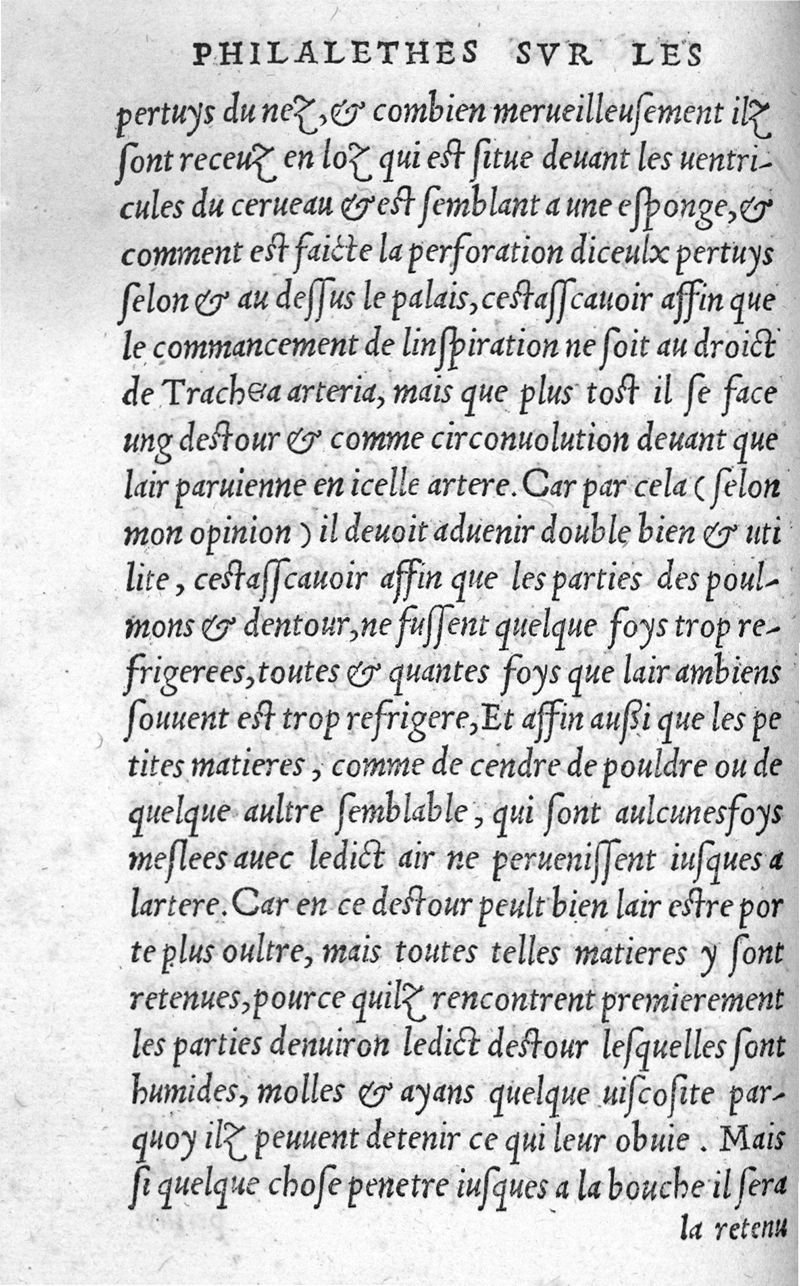 PHILALETHES SVR LES
pertuys du nez, & combien merueilleuſement ilz
ſont receuz en loz qui eſt ſitue deuant les uentri-
cules du cerueau & eſt ſemblant a une eſponge, &
comment eſt faicte la perforation diceulx pertuys
ſelon & au deſſus le palais, ceſtaſſcauoir affin que
le commancement de linſpiration ne ſoit au droict
de Trachea arteria, mais que plus toſt il ſe face
ung deſtour & comme circonuolution deuant que
lair paruienne en icelle artere. Car par cela ( ſelon
mon opinion ) il deuoit aduenir double bien & uti
lite, ceſtaſſcauoir affin que les parties des poul-
mons & dentour, ne fuſſent quelque foys trop re-
frigerees, toutes & quantes foys que lair ambiens
ſouuent eſt trop refrigere, Et affin auſſi que les pe
tites matieres, comme de cendre de pouldre ou de
quelque aultre ſemblable, qui ſont aulcunesfoys
meſlees auec ledict air ne perueniſſent iuſques a
lartere. Car en ce deſtour peult bien lair eſtre por
te plus oultre, mais toutes telles matieres y ſont
retenues, pource quilz rencontrent premierement
les parties denuiron ledict deſtour leſquelles ſont
humides, molles & ayans quelque uiſcoſite par-
quoy ilz peuuent detenir ce qui leur obuie . Mais
ſi quelque choſe penetre iuſques a la bouche il ſera
la retenu